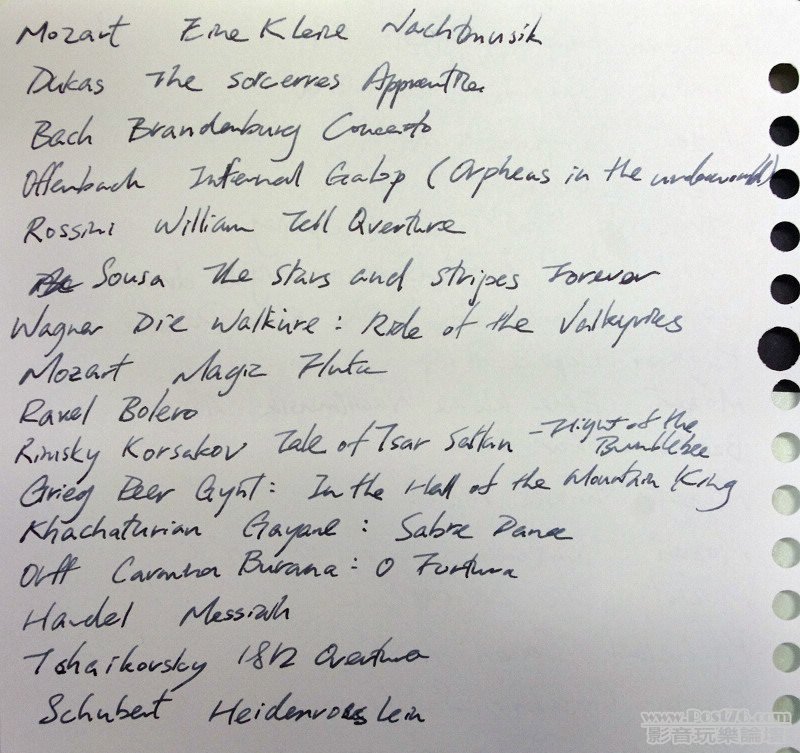 Mozart Eine Kleine Nachtmusik
Dukas The Sorcerres Apprentice
Bach Brandenburg Concerto
Offenbach Infernal Galop (Orpheus in the underworld)
Rossini William Tell Overture
Sousa The Stars and Stripes Forever
Wagner Die Walkure : Ride of the Valkyries
Mozart Magic Flute
Ravel Bolero
Rimsky Korsakov Tale of Tsar Saltan - Flight of the Bumblebee
Grieg Peer Gynt : In the Hall of the Mountain King
Khachaturian Gayane : Sabre Dance
Orff Carmina Burana : O Fortuna
Handel Messiah
Tchaikovsky 1812 Overture
Schubert Heidenroeslein
www.Post76.com
影音玩樂論壇